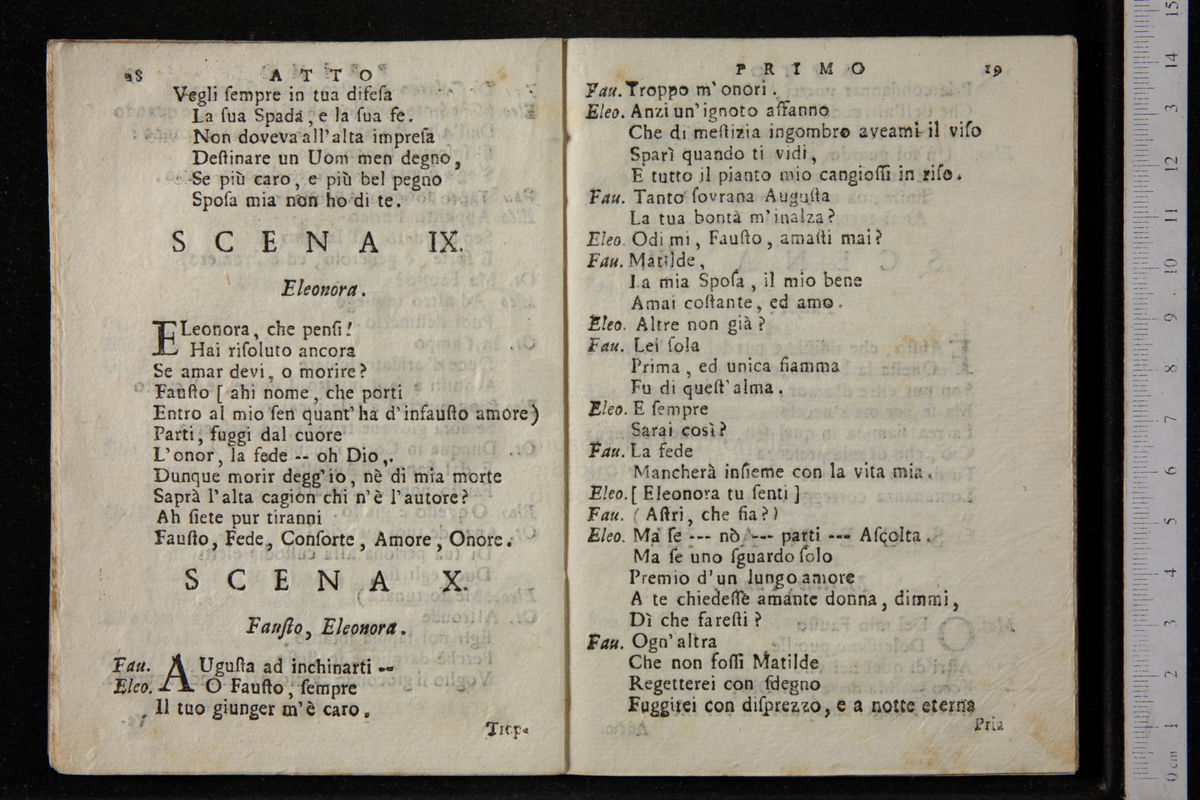 ATTO
Vegli ſempre in tua difeſa
La ſua Spada, e la ſua fe.
Non doveva all'alta impreſa
Deſtinare un Uom men degno,
Se più caro, e più bel pegno
Spoſa mia non ho di te.
SCENA IX.
Eleonora.
ELeonora, che penſi!
Hai riſoluto ancora
Se amar devi, o morire?
Fauſto [ ahi nome, che porti
Entro al mio ſen quant'ha d'infauſto amore)
Parti, fuggi dal cuore
L'onor, la fede -- oh Dio,.
Dunque morir degg'io, nè di mia morte
Saprà l'alta cagion chi n'è l'autore?
Ah ſiete pur tiranni
Fauſto, Fede, Conſorte, Amore, Onore.
SCENA X.
Fauſto, Eleonora.
Fau. AUguſta ad inchinarti --
Eleo. O Fauſto, ſempre
Il tuo giunger m'è caro.
Trop-
PRIMO 19
Fau. Troppo m'onori.
Eleo. Anzi un'ignoto affanno
Che di meſtizia ingombro aveami il viſo
Sparì quando ti vidi,
E tutto il pianto mio cangioſſi in riſo.
Fau. Tanto ſovrana Auguſta
La tua bontà m'inalza?
Eleo. Odi mi, Fauſto, amaſti mai?
Fau. Matilde,
La mia Spoſa, il mio bene
Amai coſtante, ed amo.
Eleo. Altre non già?
Fau. Lei ſola
Prima, ed unica fiamma
Fu di queſt'alma.
Eleo. E ſempre
Sarai così?
Fau. La fede
Mancherà inſieme con la vita mia.
Eleo. [ Eleonora tu ſenti ]
Fau. (Aſtri, che fia?)
Eleo. Ma ſe --- nò --- parti --- Aſcolta.
Ma ſe uno ſguardo ſolo
Premio d'un lungo amore
A te chiedeſſe amante donna, dimmi,
Dì che fareſti?
Fau. Ogn'altra
Che non foſſi Matilde
Regetterei con ſdegno
Fuggirei con diſprezzo, e a notte eterna
Pria
15
14
13
12
11
10
9
8
7
6
5
4
3
2
1
0 cm